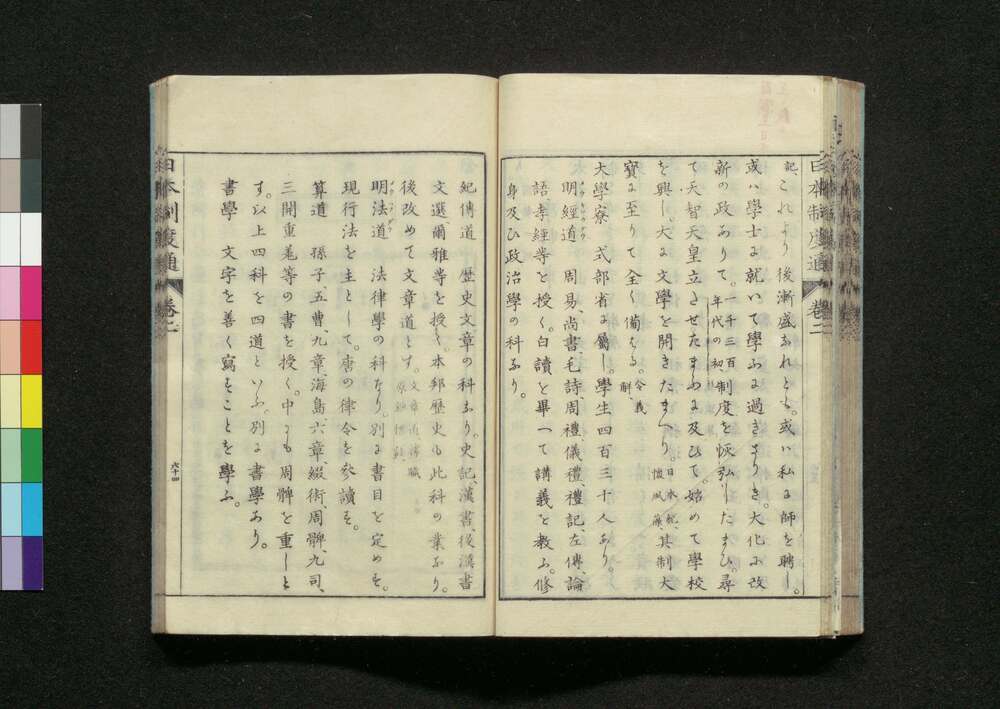 日本制度通
卷二
記。これより後漸盛なれとも。或ハ私に師を聘し。
或ハ學士に就いて學ふに過ぎさりき。大化に改
新の政ありて。一千三百年代の初制度を恢弘したまひ。尋
て天智天皇立たせたまふに及ひて。始めて學校
を興し。大に文學を開きたまへり。日本紀、懷風藻、其制大
寶に至りて全く備はる。令義解、
大學寮 式部省に屬し。學生四百三十人あり。
明經道 周易、尚書、毛詩、周禮、儀禮、禮記、左傳、論
語、孝經等を授く。白讀を畢つて講義を教ふ。修
身及ひ政治學の科なり。
紀傳道 歴史文章の科なり。史記、漢書、後漢書
文選、爾雅等を授く。本邦歴史も此科の業なり。
後改めて文章道とす。
明法道 法律學の科なり。別に書目を定めす。
現行法を主として。唐の律令を參讀す。
算道 孫子、五曹、九章、海島、六章、綴術、周髀、九司、
三開重差等の書を授く。中にも周髀を重しと
す。以上四科を四道といふ。別に書學あり。
書學 文字を善く寫すことを學ふ。
日本制度通
卷二
六十四